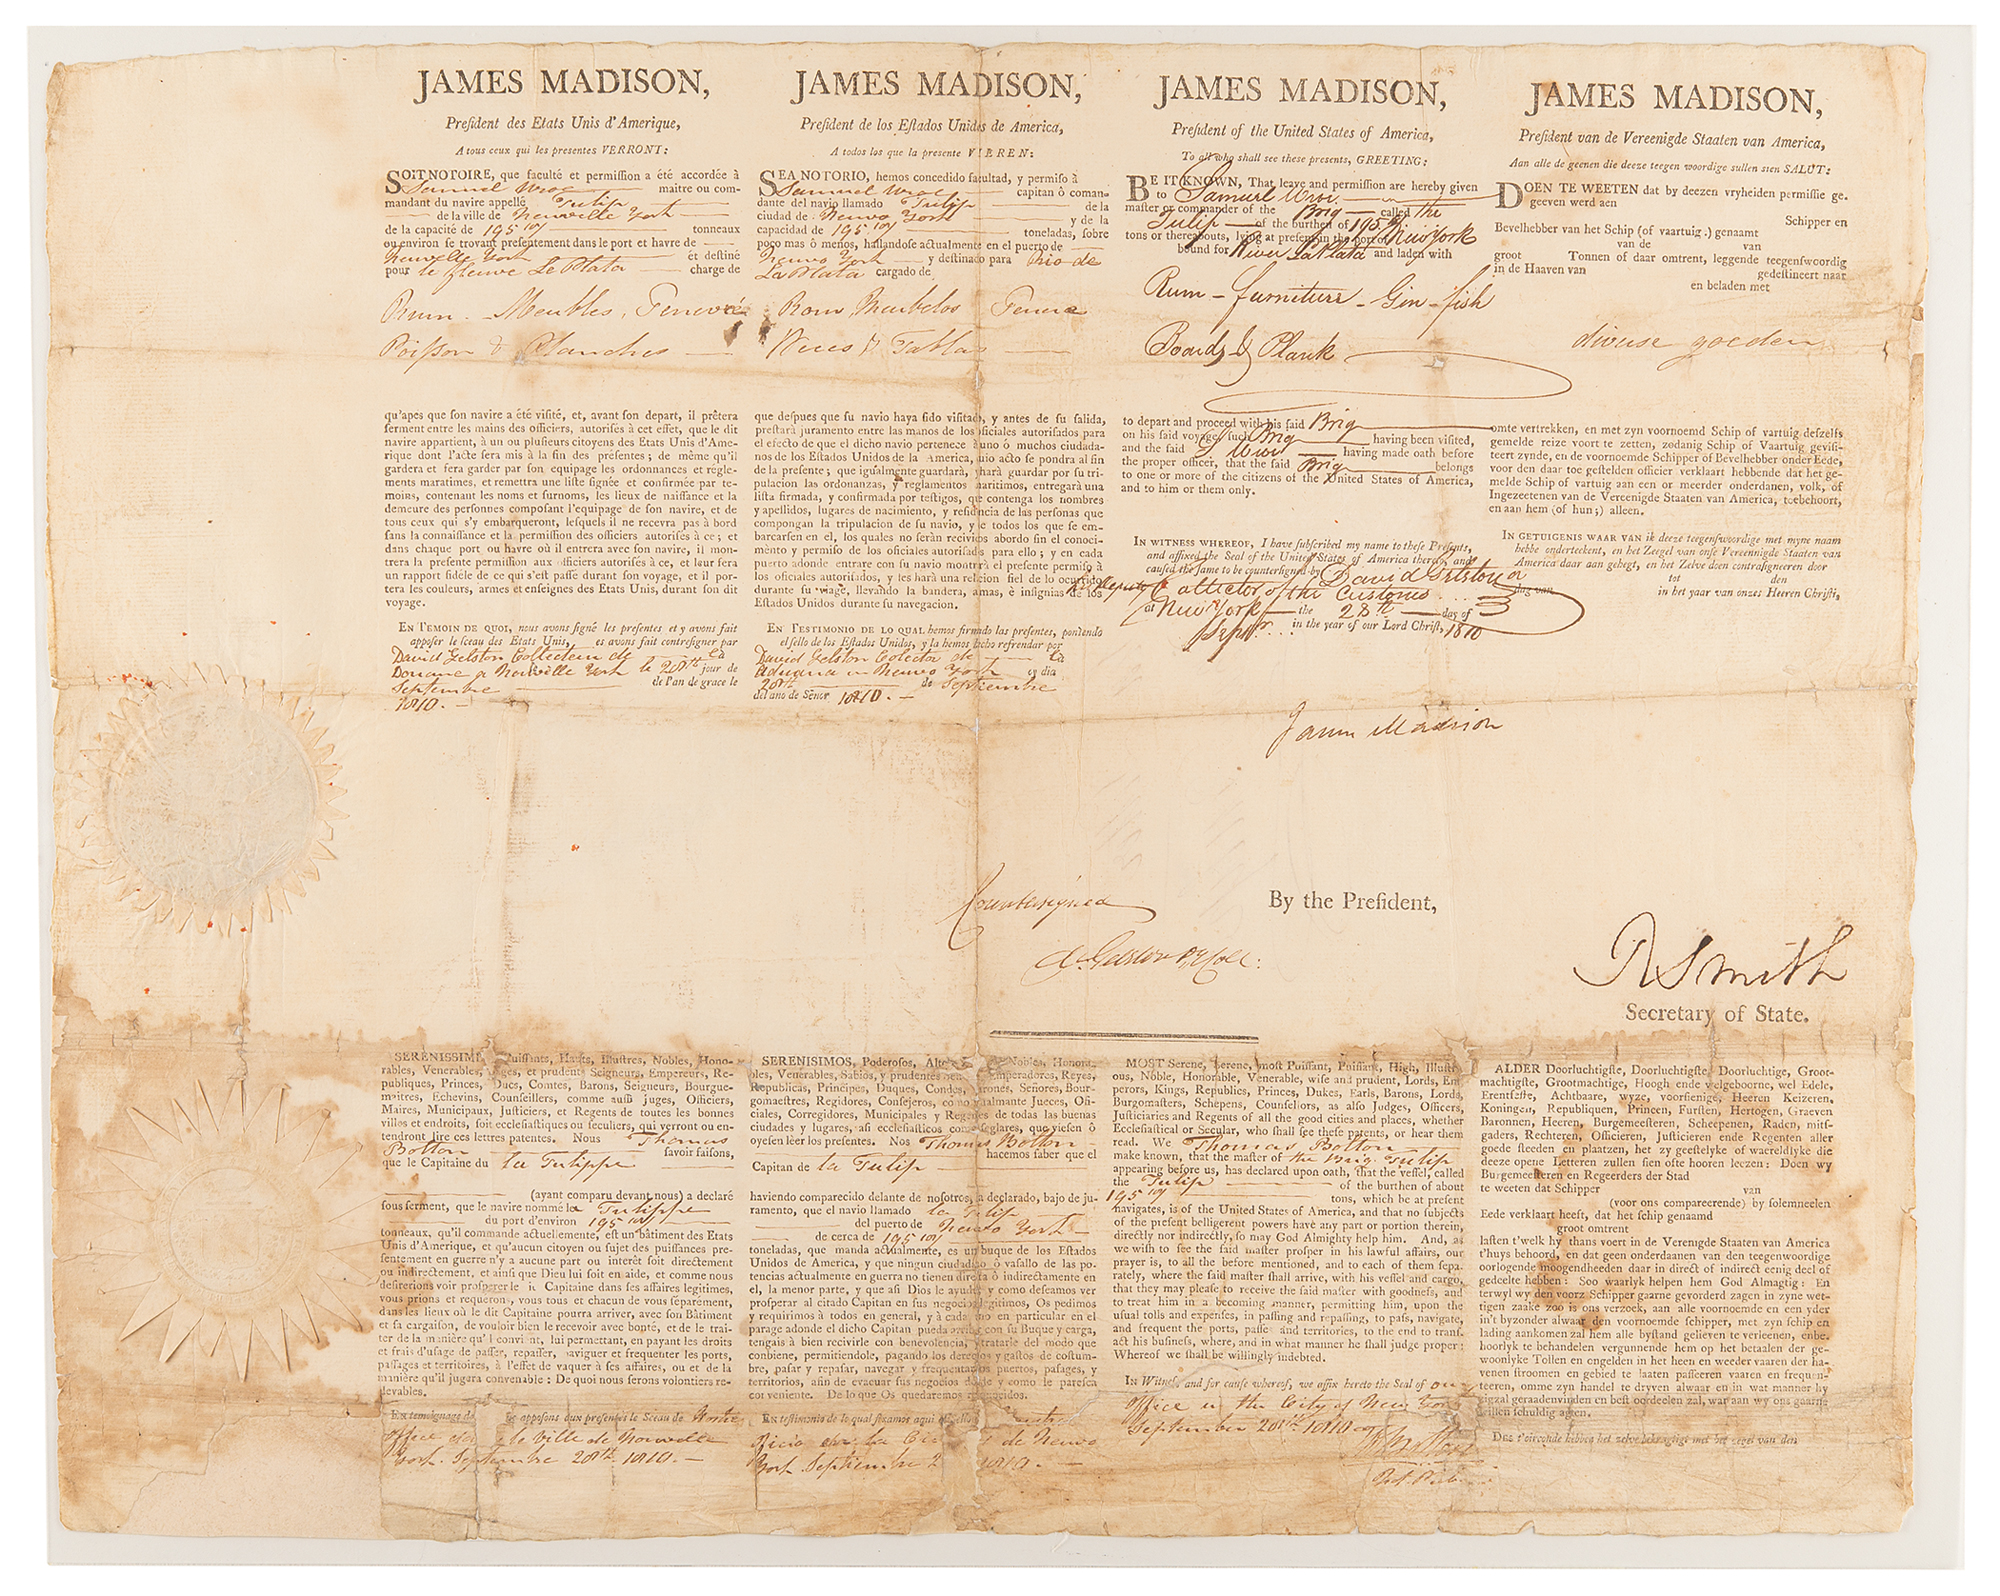 JAMES MADISON,
Preſident des Etats Unis d'Amerique,
A tous ceux qui les presentes VERRONT:
SOIT NOTOIRE, que faculté et permiſſion a été accordée à
Samuel Wroe maitre ou com-
mandant du navire appellé Tulip
de la ville de Neuville York
de la capacité de 195 tonneaux
ou environ ſe trovant preſentement dans le port et havre de
Neuville York et deſtiné
pour le fleuve Le Plata charge de
Rum - Meubles, Genevre
Poiſson & Planches
qu'apes que ſon navire a été viſité, et, avant ſon depart, il prêtera
ſerment entre les mains des officiers, autoriſés à cet effet, que le dit
navire appartient, à un ou pluſieurs citoyens des Etats Unis d'Ame-
rique dont l'acte ſera mis à la fin des préſentes; de même qu'il
gardera et fera garder par ſon equipage les ordonnances et regle-
ments maratimes, et remettra une liſte ſignée et confirmée par te-
moins, contenant les noms et ſurnoms, les lieux de naiſſance et la
demeure des perſonnes compoſant l'equipage de ſon navire, et de
tous ceux qui s'y embarqueront, leſquels il ne recevra pas à bord
ſans la connaiſſance et la permiſſion des officiers autoriſés à ce; et
dans chaque port ou havre où il entrera avec ſon navire, il mon-
trera la preſente permiſſion aux officiers autoriſés à ce, et leur fera
un rapport fidèle de ce qui s'eſt paſſé durant ſon voyage, et il por-
tera les couleurs, armes et enſeignes des Etats Unis, durant ſon dit
voyage.
EN TEMOIN DE QUOI, nous avons ſigné les preſentes et y avons fait
appoſer le ſceau des Etats Unis, es avons fait contreſigner par
David Gelston Collecteur de la
Douane a Nouville York le 28th jour de
Septembre de l'an de grace le
1810.
JAMES MADISON,
Preſident de los Eſtados Unidos de America,
A todos los que la presente VIEREN:
SEA NOTORIO, hemos concedido facultad, y permiſo à
Samuel Wroe capitan ô coman-
dante del navio llamado Tulip de la
ciudad de Neuvo York y de la
capacidad de 195 toneladas, ſobre
poco mas ô menos, hallandoſe actualmente en el puerto de
Neuvo York y deſtinado para Rio de
La Plata cargado de
Rom, Meubelos Genere
Peces & Tablas
que deſpues que ſu navio haya ſido viſitado, y antes de ſu ſalida,
preſtará juramento entre las manos de los oficiales autoriſados para
el efecto de que el dicho navio pertenece à uno ô muchos ciudada-
nos de los Eſtados Unidos de la America, cuio acto ſe pondra al fin
de la preſente; que igualmente guardará, y hará guardar por ſu tri-
pulacion las ordonanzas, y reglamentos maritimos, entregará una
liſta firmada, y confirmada por teſtigos, que contenga los nombres
y apellidos, lugares de nacimiento, y reſidencia de las perſonas que
compongan la tripulacion de ſu navio, y de todos los que ſe em-
barcarſen en el, los quales no ſeràn recividos abordo ſin el conoci-
mènto y permiſo de los oficiales autoriſados para ello; y en cada
puerto adonde entrare con ſu navio montrará el preſente permiſo à
los oficiales autoriſados, y les hará una relacion fiel de lo ocurrido
durante ſu viage, llevando la bandera, armas, è inſignias de los
Eſtados Unidos durante ſu navegacion.
EN TESTIMONIO DE LO QUAL hemos firmado las preſentes, poniendo
el ſello de los Eſtados Unidos, y la hemos hecho refrendar por
David Gelston Colector de la
Aduana en Neuvo York es dia
28th de Septiembre
del ano de Señor 1810.
JAMES MADISON,
Preſident of the United States of America,
To all who shall see these presents, GREETING:
BE IT KNOWN, That leave and permiſſion are hereby given
to Samuel Wroe
maſter or commander of the Brig called the
Tulip of the burthen of 195
tons or thereabouts, lying at preſent in the port of New York
bound for River La Plata and laden with
Rum - furniture - Gin - fish
Boards & Plank
to depart and proceed with his ſaid Brig
on his ſaid voyage, ſuch Brig having been viſited,
and the ſaid S Wroe having made oath before
the proper officer, that the ſaid Brig belongs
to one or more of the citizens of the United States of America,
and to him or them only.
IN WITNESS WHEREOF, I have ſubſcribed my name to theſe Preſents,
and affixed the Seal of the United States of America thereto, and
cauſed the ſame to be counterſigned by David Gelston
Collector of the Customs
at New York the 28th day of
Septr. in the year of our Lord Chriſt, 1810
JAMES MADISON,
Preſident van de Vereenigde Staaten van America,
Aan alle de geenen die deeze teegen woordige sullen sien SALUT:
DOEN TE WEETEN dat by deezen vryheiden permiſſie ge-
geeven werd aen
Schipper en
Bevelhebber van het Schip (of vaartuig.) genaamt
van de van
groot Tonnen of daar omtrent, leggende teegenſwoordig
in de Haaven van gedeſtineert naar
en beladen met
diverse goederen
omte vertrekken, en met zyn voornoemd Schip of vartuig deſzelfs
gemelde reize voort te zetten, zodanig Schip of Vaartuig geviſi-
teert zynde, en de voornoemde Schipper of Bevelhebber onder Eede,
voor den daar toe geſtelden officier verklaart hebbende dat het ge-
melde Schip of vartuig aan een or meerder onderdanen, volk, of
Ingezeetenen van de Vereenigde Staaten van America, toebehoort,
en aan hem (of hun;) alleen.
IN GETUIGENIS WAAR VAN ik deeze teegenſwoordige met myne naam
hebbe onderteekent, en het Zeegel van onſe Vereenigde Staaten van
America daar aan gehegt, en het Zelve doen contraſigneeren door
tot den
dag van in het yaar van onzes Heeren Chriſti,
James Madison
Countersigned
By the Preſident,
D. Gelston Coll:
R Smith
Secretary of State.
SERENISSIMES, Puiſſants, Hauts, Illuſtres, Nobles, Hono-
rables, Venerables, Sages, et prudents Seigneurs, Empereurs, Re-
publiques, Princes, Ducs, Comtes, Barons, Seigneurs, Bourgue-
maitres, Echevins, Counſeillers, comme auſſi juges, Officiers,
Maires, Municipaux, Juſticiers, et Regents de toutes les bonnes
villes et endroits, ſoit eccleſiaſtiques ou ſeculiers, qui verront ou en-
tendront lire ces lettres patentes. Nous Thomas
Bolton ſavoir faiſons,
que le Capitaine du la Tulippe
(ayant comparu devant nous) a declaré
ſous ſerment, que le navire nommé la Tulippe
du port d'environ 195
tonneaux, qu'il commande actuellement, eſt un bâtiment des Etats
Unis d'Amerique, et qu'aucun citoyen ou ſujet des puiſſances pre-
ſentement en guerre n'y a aucune part ou interêt ſoit directement
ou indirectement, et ainſi que Dieu lui ſoit en aide, et comme nous
deſirerions voir proſperer le Capitaine dans ſes affaires legitimes,
vous prions et requerons, vous tous et chacun de vous ſéparément,
dans les lieux où le dit Capitaine pourra arriver, avec ſon Bâtiment
et ſa cargaiſon, de vouloir bien le recevoir avec bonté, et de le trai-
ter de la manière qu'il convient, lui permettant, en payant les droits
et frais d'uſage de paſſer, repaſſer, naviguer et frequenter les ports,
paſſages et territoires, à l'effet de vaquer à ſes affaires, ou et de la
manière qu'il jugara convenable: De quoi nous ferons volontiers re-
devables.
En temoignage de appoſons aux preſentes le Sceau de Notre
office le Ville de Nouvelle
York. Septembre 28th 1810.
SERENISIMOS, Poderoſos, Nobles, Honora-
bles, Venerables, Sabios, y prudentes Emperadores, Reyes,
Republicas, Principes, Duques, Condes, Barones, Señores, Bour-
gomaeſtres, Regidores, Conſejeros, como igualmante Jueces, Ofi-
ciales, Corregidores, Municipales y Regentes de todas las buenas
ciudades y lugares, aſi eccleſiaſticos como ſeglares, que vieſen ô
oyeſen lèer los preſentes. Nos Thomas Bolton
hacemos ſaber que el
Capitan de la Tulip
haviendo comparecido delante de noſotros, a declarado, bajo de ju-
ramento, que el navio llamado la Tulip
del puerto de Neuvo York
de cerca de 195
toneladas, que manda actualmente, es un buque de los Eſtados
Unidos de America, y que ningun ciudadano ô vaſallo de las po-
tencias actualmente en guerra no tienen directa ô indirectamente en
el, la menor parte, y que aſi Dios le ayude y como deſeamos ver
proſperar al citado Capitan en ſus negocios legitimos, Os pedimos
y requirimos à todos en general, y à cada uno en particular en el
parage adonde el dicho Capitan pueda arribar con ſu Buque y carga,
tengais à bien recivirle con benevolencia, y tratarle del modo que
conbiene, permitiendole, pagando los derechos y gaſtos de coſtum-
bre, paſar y repaſar, navegar y frequentar los puertos, paſages, y
territorios, afin de evacuar ſus negocios donde y como le pareſca
conveniente. De lo que Os quedaremos reconocidos.
En teſtimonio de lo qual ſixamos aqui el ſello
oficio en la de Neuvo
York. Septiembre 1810.
MOST Serene, Serene, moſt Puiſſant, Puiſſant, High, Illuſtri-
ous, Noble, Honorable, Venerable, wiſe and prudent, Lords, Em-
perors, Kings, Republics, Princes, Dukes, Earls, Barons, Lords,
Burgomaſters, Schepens, Counſellors, as alſo Judges, Officers,
Juſticiaries and Regents of all the good cities and places, whether
Eccleſiaſtical or Secular, who ſhall ſee theſe patents, or hear them
read. We Thomas Bolton
make known, that the maſter of the Brig Tulip
appearing before us, has declared upon oath, that the veſſel, called
the Tulip of the burthen of about
195 tons, which he at preſent
navigates, is of the United States of America, and that no ſubjects
of the preſent belligerent powers have any part or portion therein,
directly nor indirectly, ſo may God Almighty help him. And, as
we wiſh to ſee the ſaid maſter proſper in his lawful affairs, our
prayer is, to all the before mentioned, and to each of them ſepa-
rately, where the ſaid maſter ſhall arrive, with his veſſel and cargo,
that they may pleaſe to receive the ſaid maſter with goodneſs, and
to treat him in a becoming manner, permitting him, upon the
uſual tolls and expenſes, in paſſing and repaſſing, to paſs, navigate,
and frequent the ports, paſſes and territories, to the end to tranſ-
act his buſineſs, where, and in what manner he ſhall judge proper:
Whereof we ſhall be willingly indebted.
In Witneſs and for cauſe whereof, we affix hereto the Seal of our
office in the City of New York
September 28th 1810
ALDER Doorluchtigſte, Doorluchtigſte, Doorluchtige, Groot-
machtigſte, Grootmachtige, Hoogh ende welgeboorne, wel Edele,
Erentfeſte, Achtbaare, wyze, voorſienige, Heeren Keizeren,
Koningen, Republiquen, Princen, Furſten, Hertogen, Graeven
Baronnen, Heeren, Burgemeeſteren, Scheepenen, Raden, mitſ-
gaders, Rechteren, Officieren, Juſticieren ende Regenten aller
goede ſteeden en plaatzen, het zy geeſtelyke of waereldlyke die
deeze opene Letteren zullen ſien ofte hooren leezen: Doen wy
Burgemeeſteren en Regeerders der Stad
te weeten dat Schipper van
(voor ons compareerende) by ſolemneelen
Eede verklaart heeft, dat het ſchip genaamd
groot omtrent
laſten t'welk hy thans voert in de Verenigde Staaten van America
t'huys behoord, en dat geen onderdaanen van den teegenwoordige
oorlogende moogendheeden daar in direct of indirect eenig deel of
gedeelte hebben: Soo waarlyk helpen hem God Almagtig: En
terwyl wy den voorz Schipper gaarne gevorderd zagen in zyne wet-
tigen zaake zoo is ons verzoek, aan alle voornoemde en een yder
in't byzonder alwaar den voornoemde schipper, met zyn ſchip en
lading aankomen zal hem alle byſtand gelieven te verleenen, enbe-
hoorlyk te behandelen vergunnende hem op het betaalen der ge-
woonlyke Tollen en ongelden in het heen en weeder vaaren der ha-
venen ſtroomen en gebied te laaten paſſeeren vaaren en frequen-
teeren, omme zyn handel te dryven alwaar en in wat manner hy
zigzal geraadenvinden en beſt oordeelen zal, war aan wy ons gaarne
willen ſchuldig agten.
Des t'oirconde hebben het zelve bekragtigt met het zegel van den